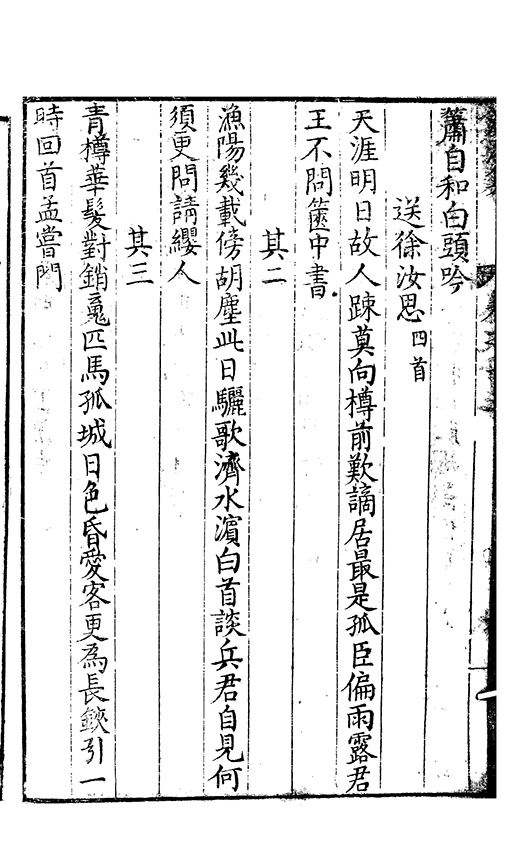 簫自和白頭吟
送徐汝思四首
天涯明日故人踈莫向樽前歎謫居最是孤臣偏雨露君
王不問篋中書
其二
漁陽幾載傍胡塵此日驪歌濟水濵白首談兵君自見何
須更問請纓人
其三
青樽華髮對銷䰟匹馬孤城日色昏愛客更為長鋏引一
時回首孟嘗門